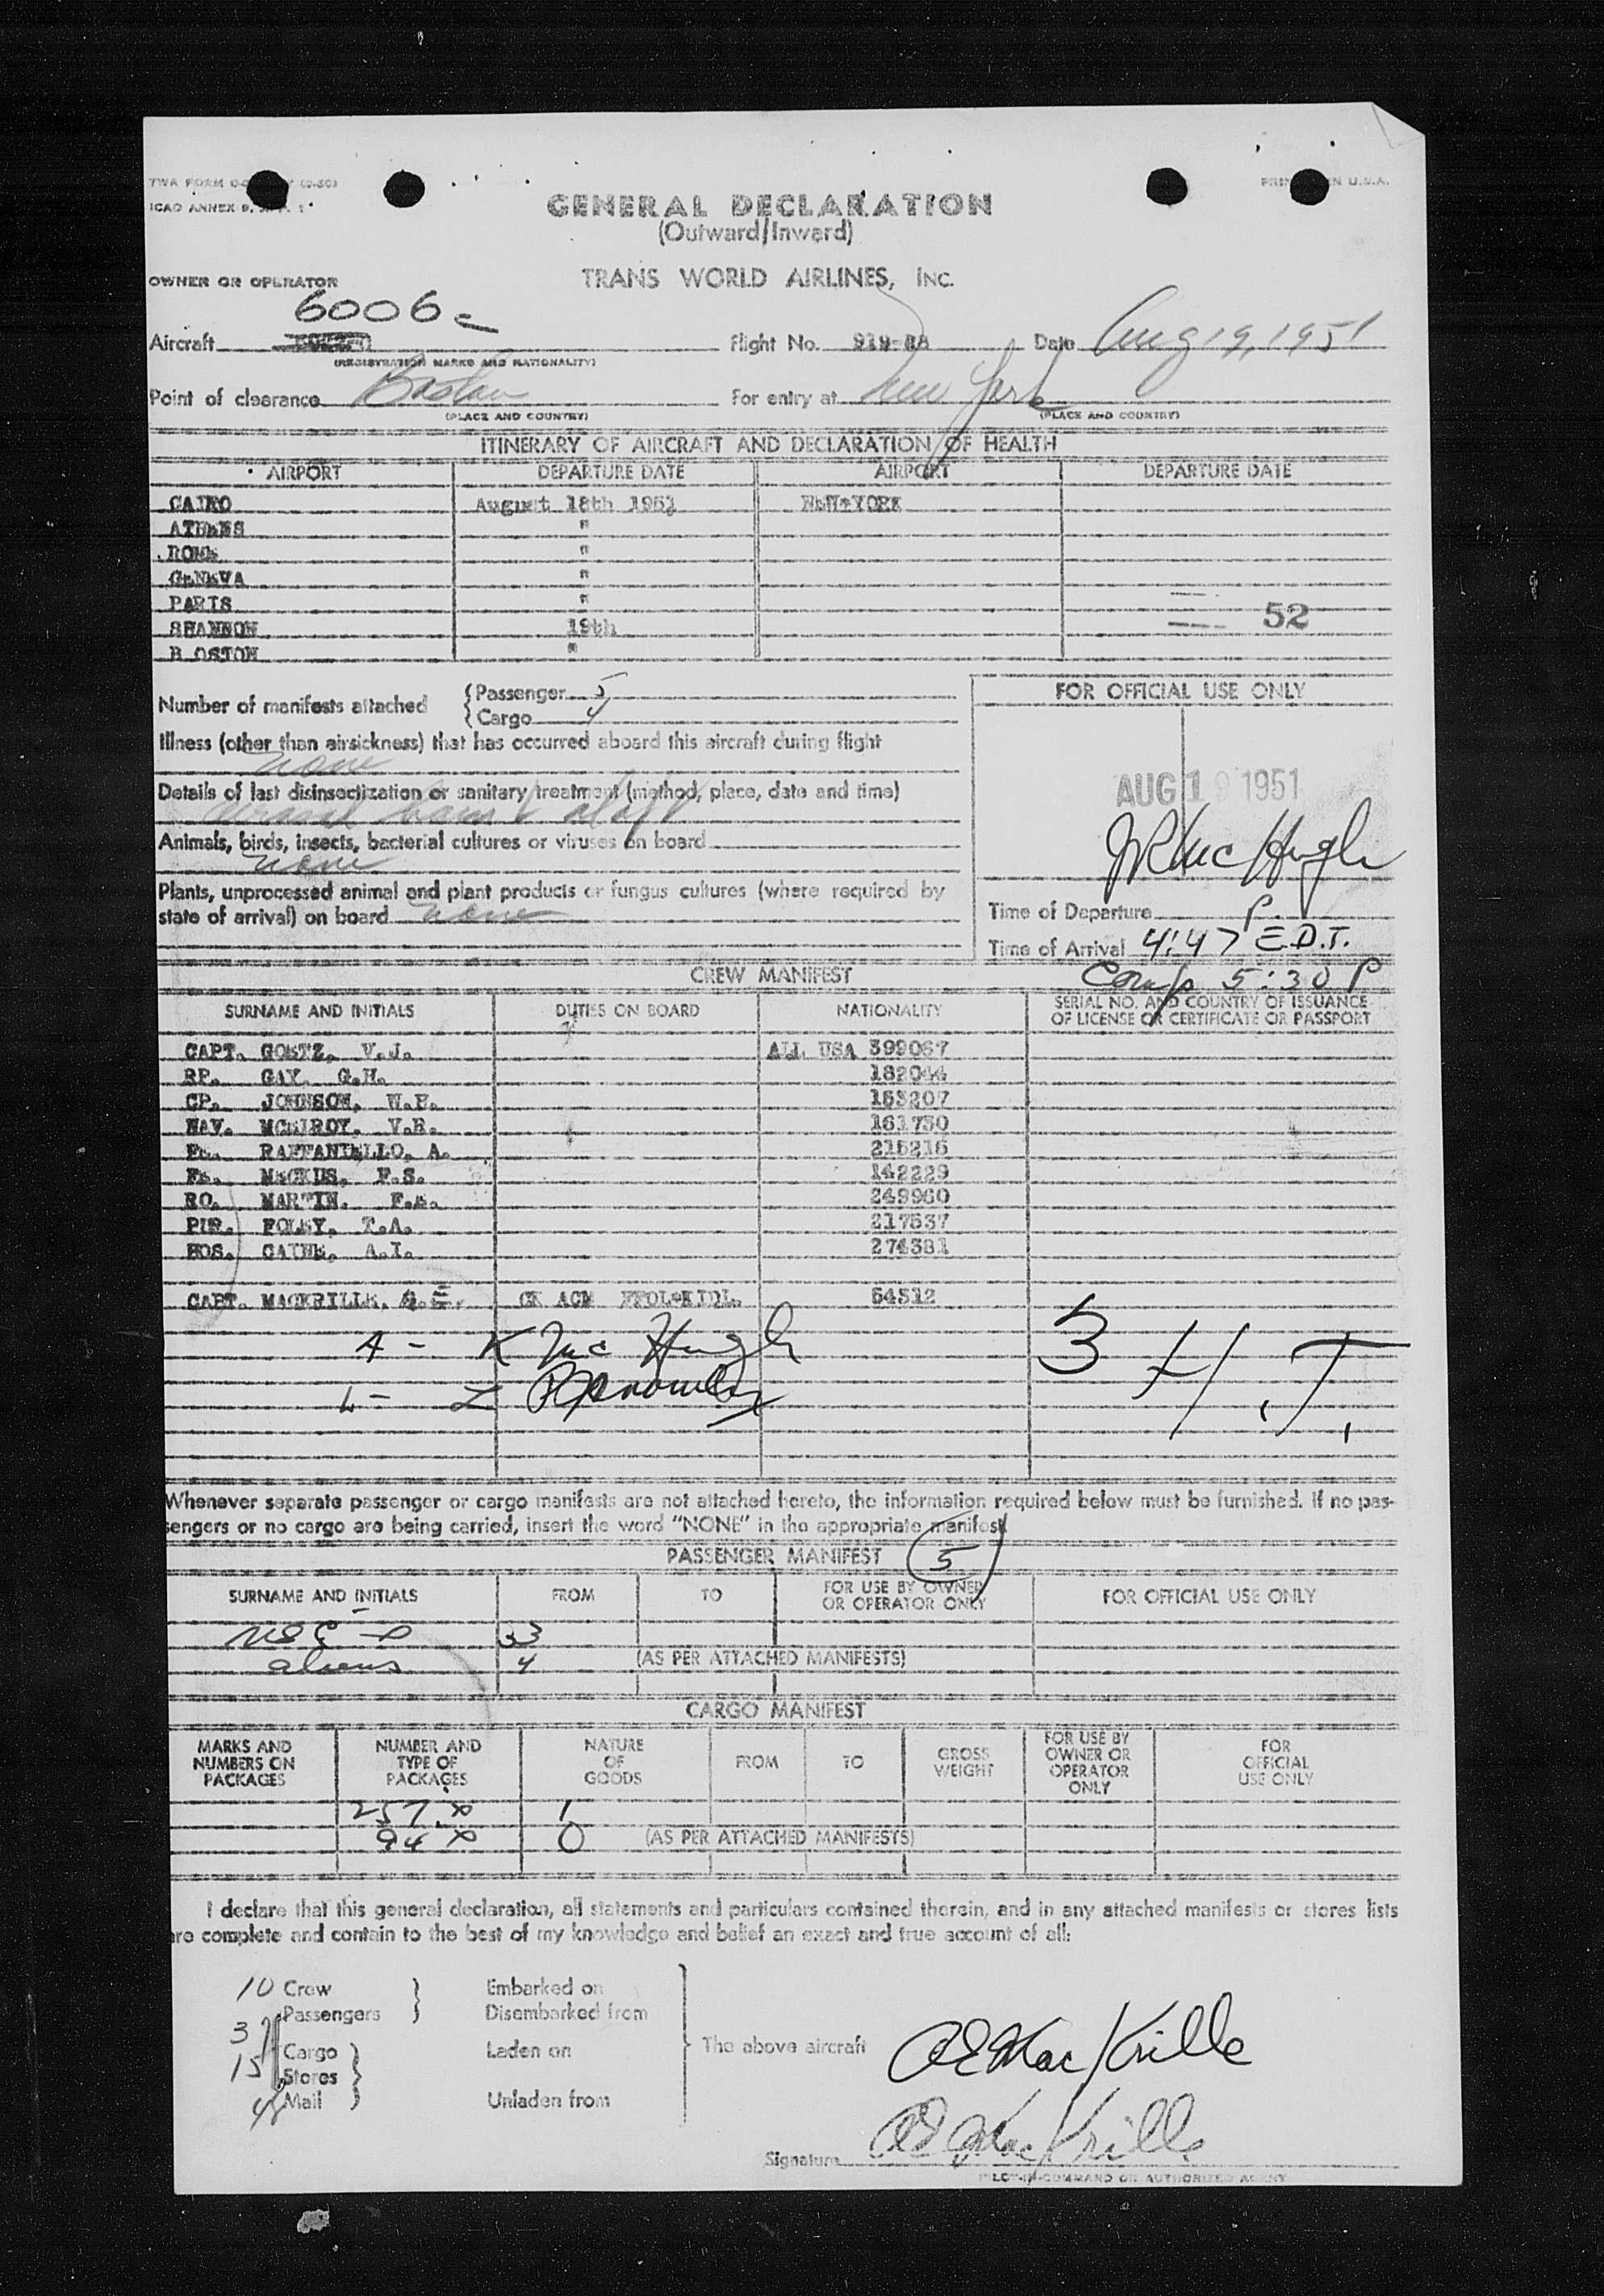 TWA FORM
PRINTED IN U.S.A.
ICAO ANNEX 9,
GENERAL DECLARATION
(Outward/Inward)
OWNER OR OPERATOR TRANS WORLD AIRLINES, INC.
6006
Aircraft Flight No. 919- Date Aug 19, 1951
(REGISTRATION MARKS AND NATIONALITY)
Point of clearance Boston For entry at New York
(PLACE AND COUNTRY) (PLACE AND COUNTRY)
ITINERARY OF AIRCRAFT AND DECLARATION OF HEALTH
AIRPORT DEPARTURE DATE AIRPORT DEPARTURE DATE
CAIRO August 18th 1951 NEW YORK
ATHENS "
ROME "
GENEVA "
PARIS "
52
SHANNON 19th
B OSTON "
Number of manifests attached { Passenger 5
{ Cargo 4
FOR OFFICIAL USE ONLY
Illness (other than airsickness) that has occurred aboard this aircraft during flight
none
Details of last disinsectization or sanitary treatment (method, place, date and time)
AUG 19 1951
Animals, birds, insects, bacterial cultures or viruses on board
none
JR McHugh
Plants, unprocessed animal and plant products or fungus cultures (where required by
state of arrival) on board none
Time of Departure P.
Time of Arrival 4:47 E.D.T.
Comp 5:30 P
CREW MANIFEST
SURNAME AND INITIALS DUTIES ON BOARD NATIONALITY SERIAL NO. AND COUNTRY OF ISSUANCE
OF LICENSE OR CERTIFICATE OR PASSPORT
CAPT. GOETZ, V.J. ALL USA 399067
RP. GAY, G.H. 182044
CP. JOHNSON, W.F. 153207
NAV. MCELROY, V.R. 161730
FE. RAFFANIELLO, A. 215216
FE. MECKUS, F.S. 142229
RO. MARTIN, F.E. 243960
PUR. FOLEY, T.A. 217537
HOS. CAINE, A.I. 274381
CAPT. MACKRILLE, A.E. CK ACM 54512
A - K McHugh 3 H.T.
L - L
Whenever separate passenger or cargo manifests are not attached hereto, the information required below must be furnished. If no pas-
sengers or no cargo are being carried, insert the word "NONE" in the appropriate manifest
PASSENGER MANIFEST 5
SURNAME AND INITIALS FROM TO FOR USE BY OWNER
OR OPERATOR ONLY FOR OFFICIAL USE ONLY
33
aliens 4 (AS PER ATTACHED MANIFESTS)
CARGO MANIFEST
MARKS AND
NUMBERS ON
PACKAGES
NUMBER AND
TYPE OF
PACKAGES
NATURE
OF
GOODS
FROM TO GROSS
WEIGHT
FOR USE BY
OWNER OR
OPERATOR
ONLY
FOR
OFFICIAL
USE ONLY
257 1
94 0 (AS PER ATTACHED MANIFESTS)
I declare that this general declaration, all statements and particulars contained therein, and in any attached manifests or stores lists
are complete and contain to the best of my knowledge and belief an exact and true account of all:
10 Crew } Embarked on
Passengers } Disembarked from
Cargo } Laden on The above aircraft AE MacKrille
15 Stores }
48 Mail } Unladen from
Signature AE MacKrille
PILOT-IN-COMMAND OR AUTHORIZED AGENT